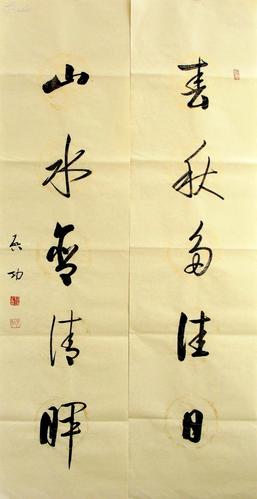 春秋多佳日
山水含清晖
启功